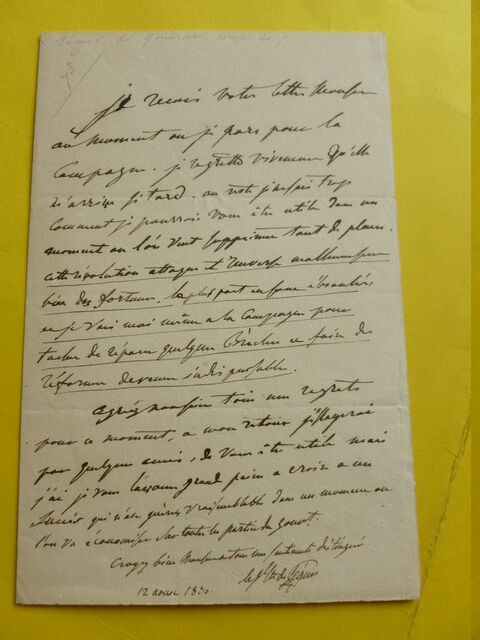 je reçois votre lettre Monsieur
au moment ou je pars pour la
Campagne. je regrette vivement qu'elle
m'arrive si tard. au reste je ne sais trop
comment je pourrois vous être utile dans un
moment ou l'on veut supprimer tant de places.
cette révolution attaque et renverse malheureusement
bien des fortunes, la plus part en sera ébranlée
et je vais moi même a la Campagne pour
tacher de réparer quelques Brèches et faire des
réformes devenues indispensables.
agréez monsieur tous mes regrets
pour ce moment, a mon retour j'essayerai
par quelques amis, de vous être utile mais
j'ai je vous l'assure grand peine a croire a un
succès qui n'est guères vraisemblable dans un moment ou
l'on va economiser sur toutes les parties du gouvt.
Croyez bien Monsieur a tous mes sentiments distingués
le Gl Cte de Ségur
12 aoust 1830.